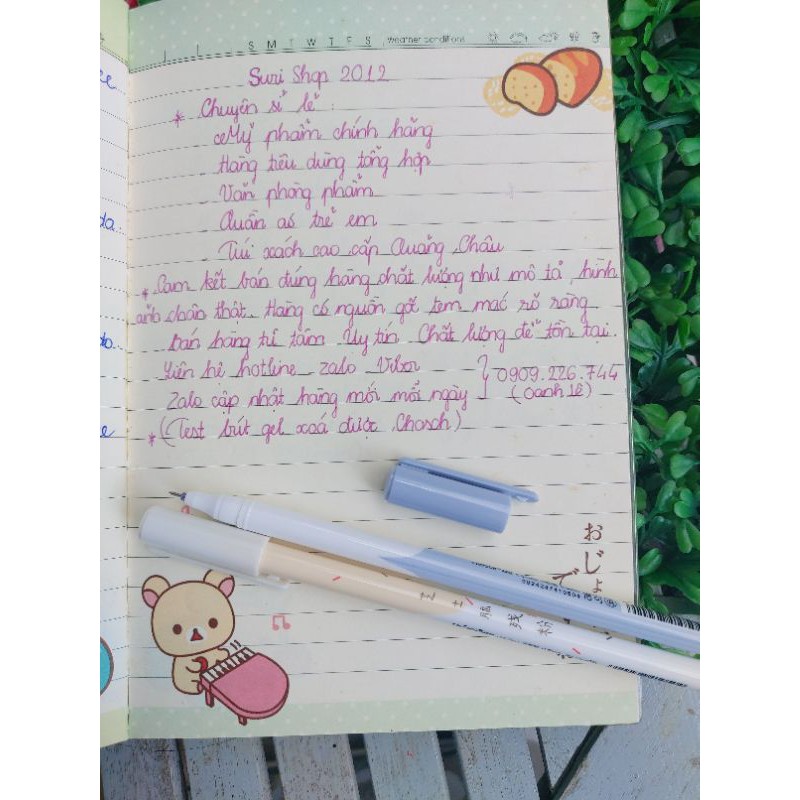 S M T W T F S Weather conditions
Suri Shop 2012
* Chuyên sỉ lẻ :
Mỹ phẩm chính hãng
Hàng tiêu dùng tổng hợp
Văn phòng phẩm
Quần áo trẻ em
Túi xách cao cấp Quảng Châu
* Cam kết bán đúng hàng chất lượng như mô tả, hình
ảnh chân thật. Hàng có nguồn gốc tem mác rõ ràng
bán hàng từ tâm Uy tín Chất lượng để tồn tại.
Liên hệ hotline zalo Viber
Zalo cập nhật hàng mới mỗi ngày
} 0909.226.744
(Oanh Lê)
* (Test bút gel xoá được, Chosch)
おじょ
で